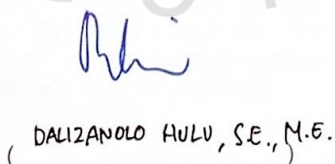 DALIZANOLO HULU, S.E., M.E.